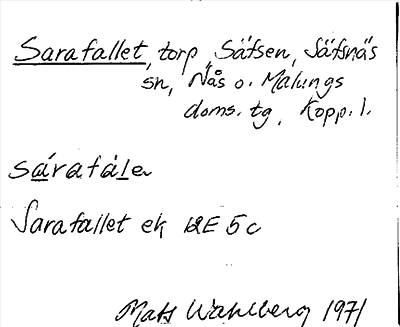 Sarafallet, torp, Säfsen, Säfsnäs
sn, Nås o. Malungs
doms. tg, Kopp. l.
sárafále
Sarafallet ek 12E 5c
Mats Wahlberg 1971